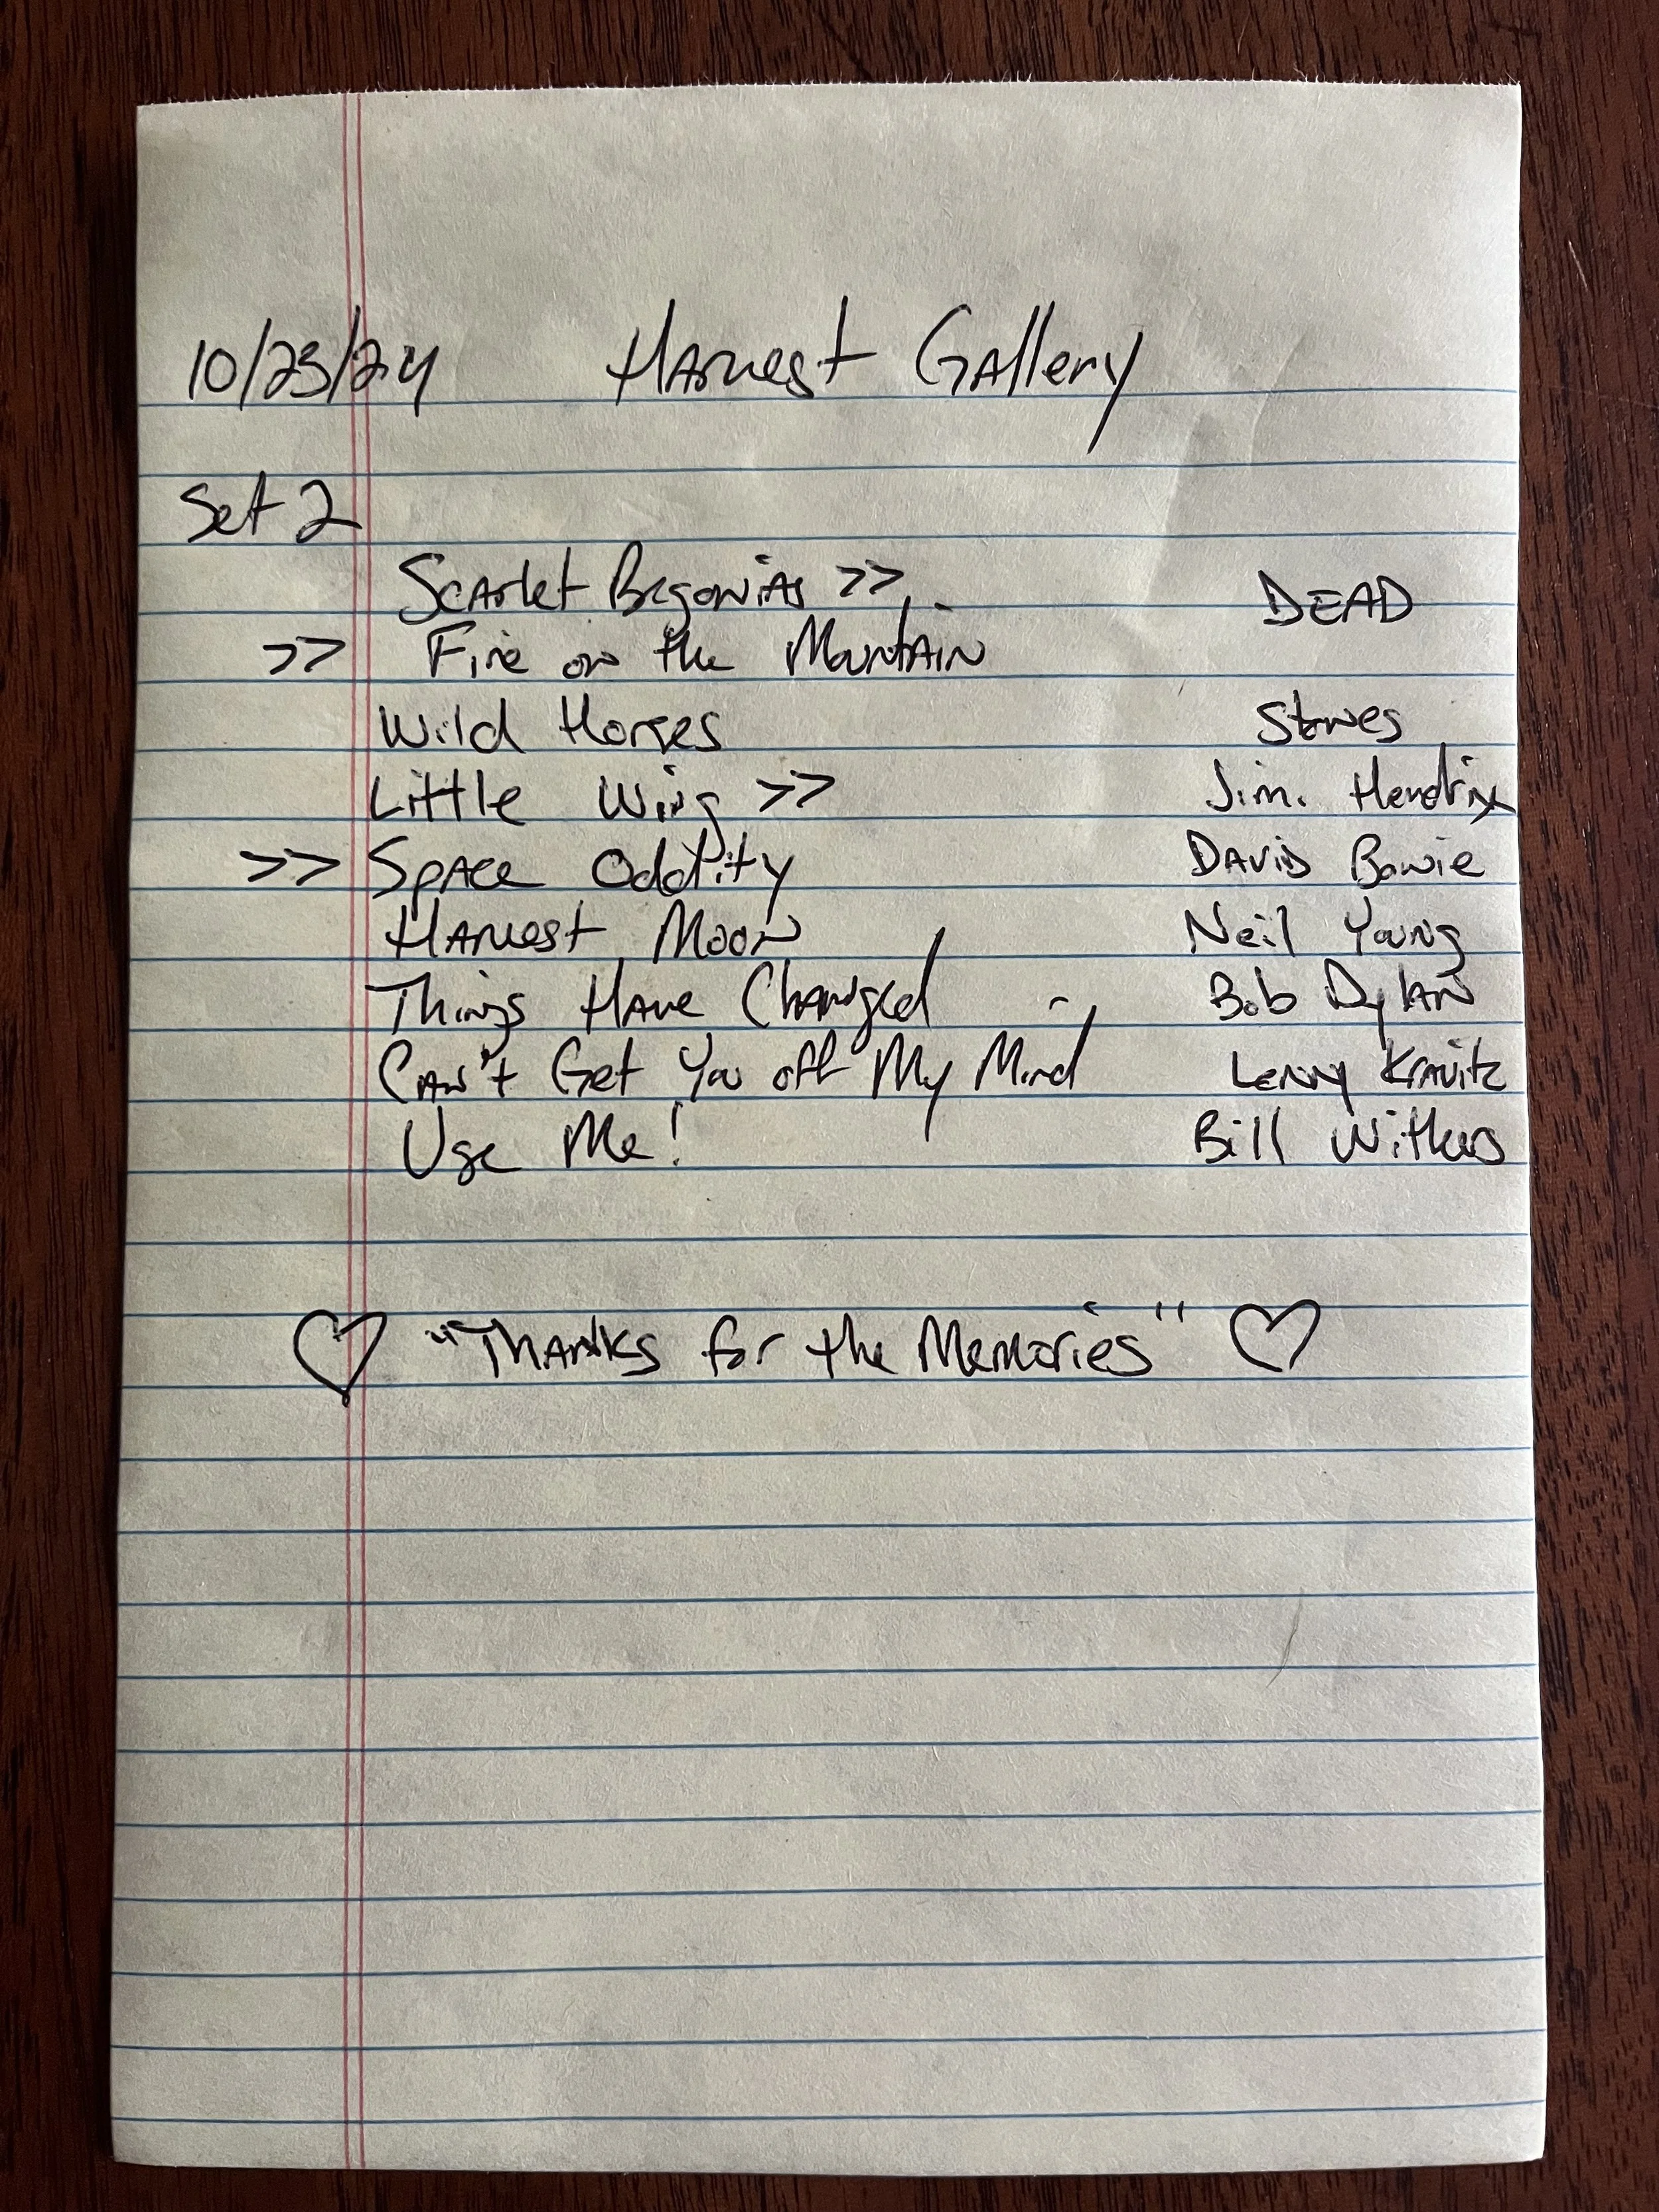 10/23/24 Harvest Gallery
Set 2
Scarlet Begonias >> DEAD
>> Fire on the Mountain
Wild Horses Stones
Little Wing >> Jimi Hendrix
>> Space Oddity David Bowie
Harvest Moon Neil Young
Things Have Changed Bob Dylan
Can't Get You off My Mind Lenny Kravitz
Use Me! Bill Withers
♡ "Thanks for the Memories" ♡